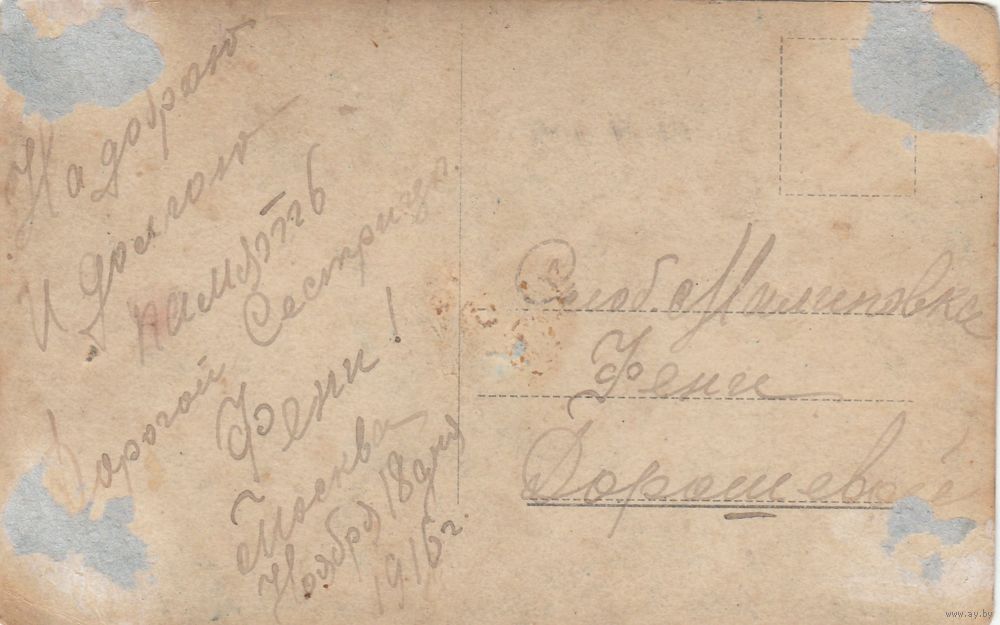 На добраю
И Долгою
памѧть
Дорогой Сестрицы.
Фени!
Москва
Ноября 18 дня
1916 г.
слоб. Милиновка
Фени
Дорошевой
www.ay.by